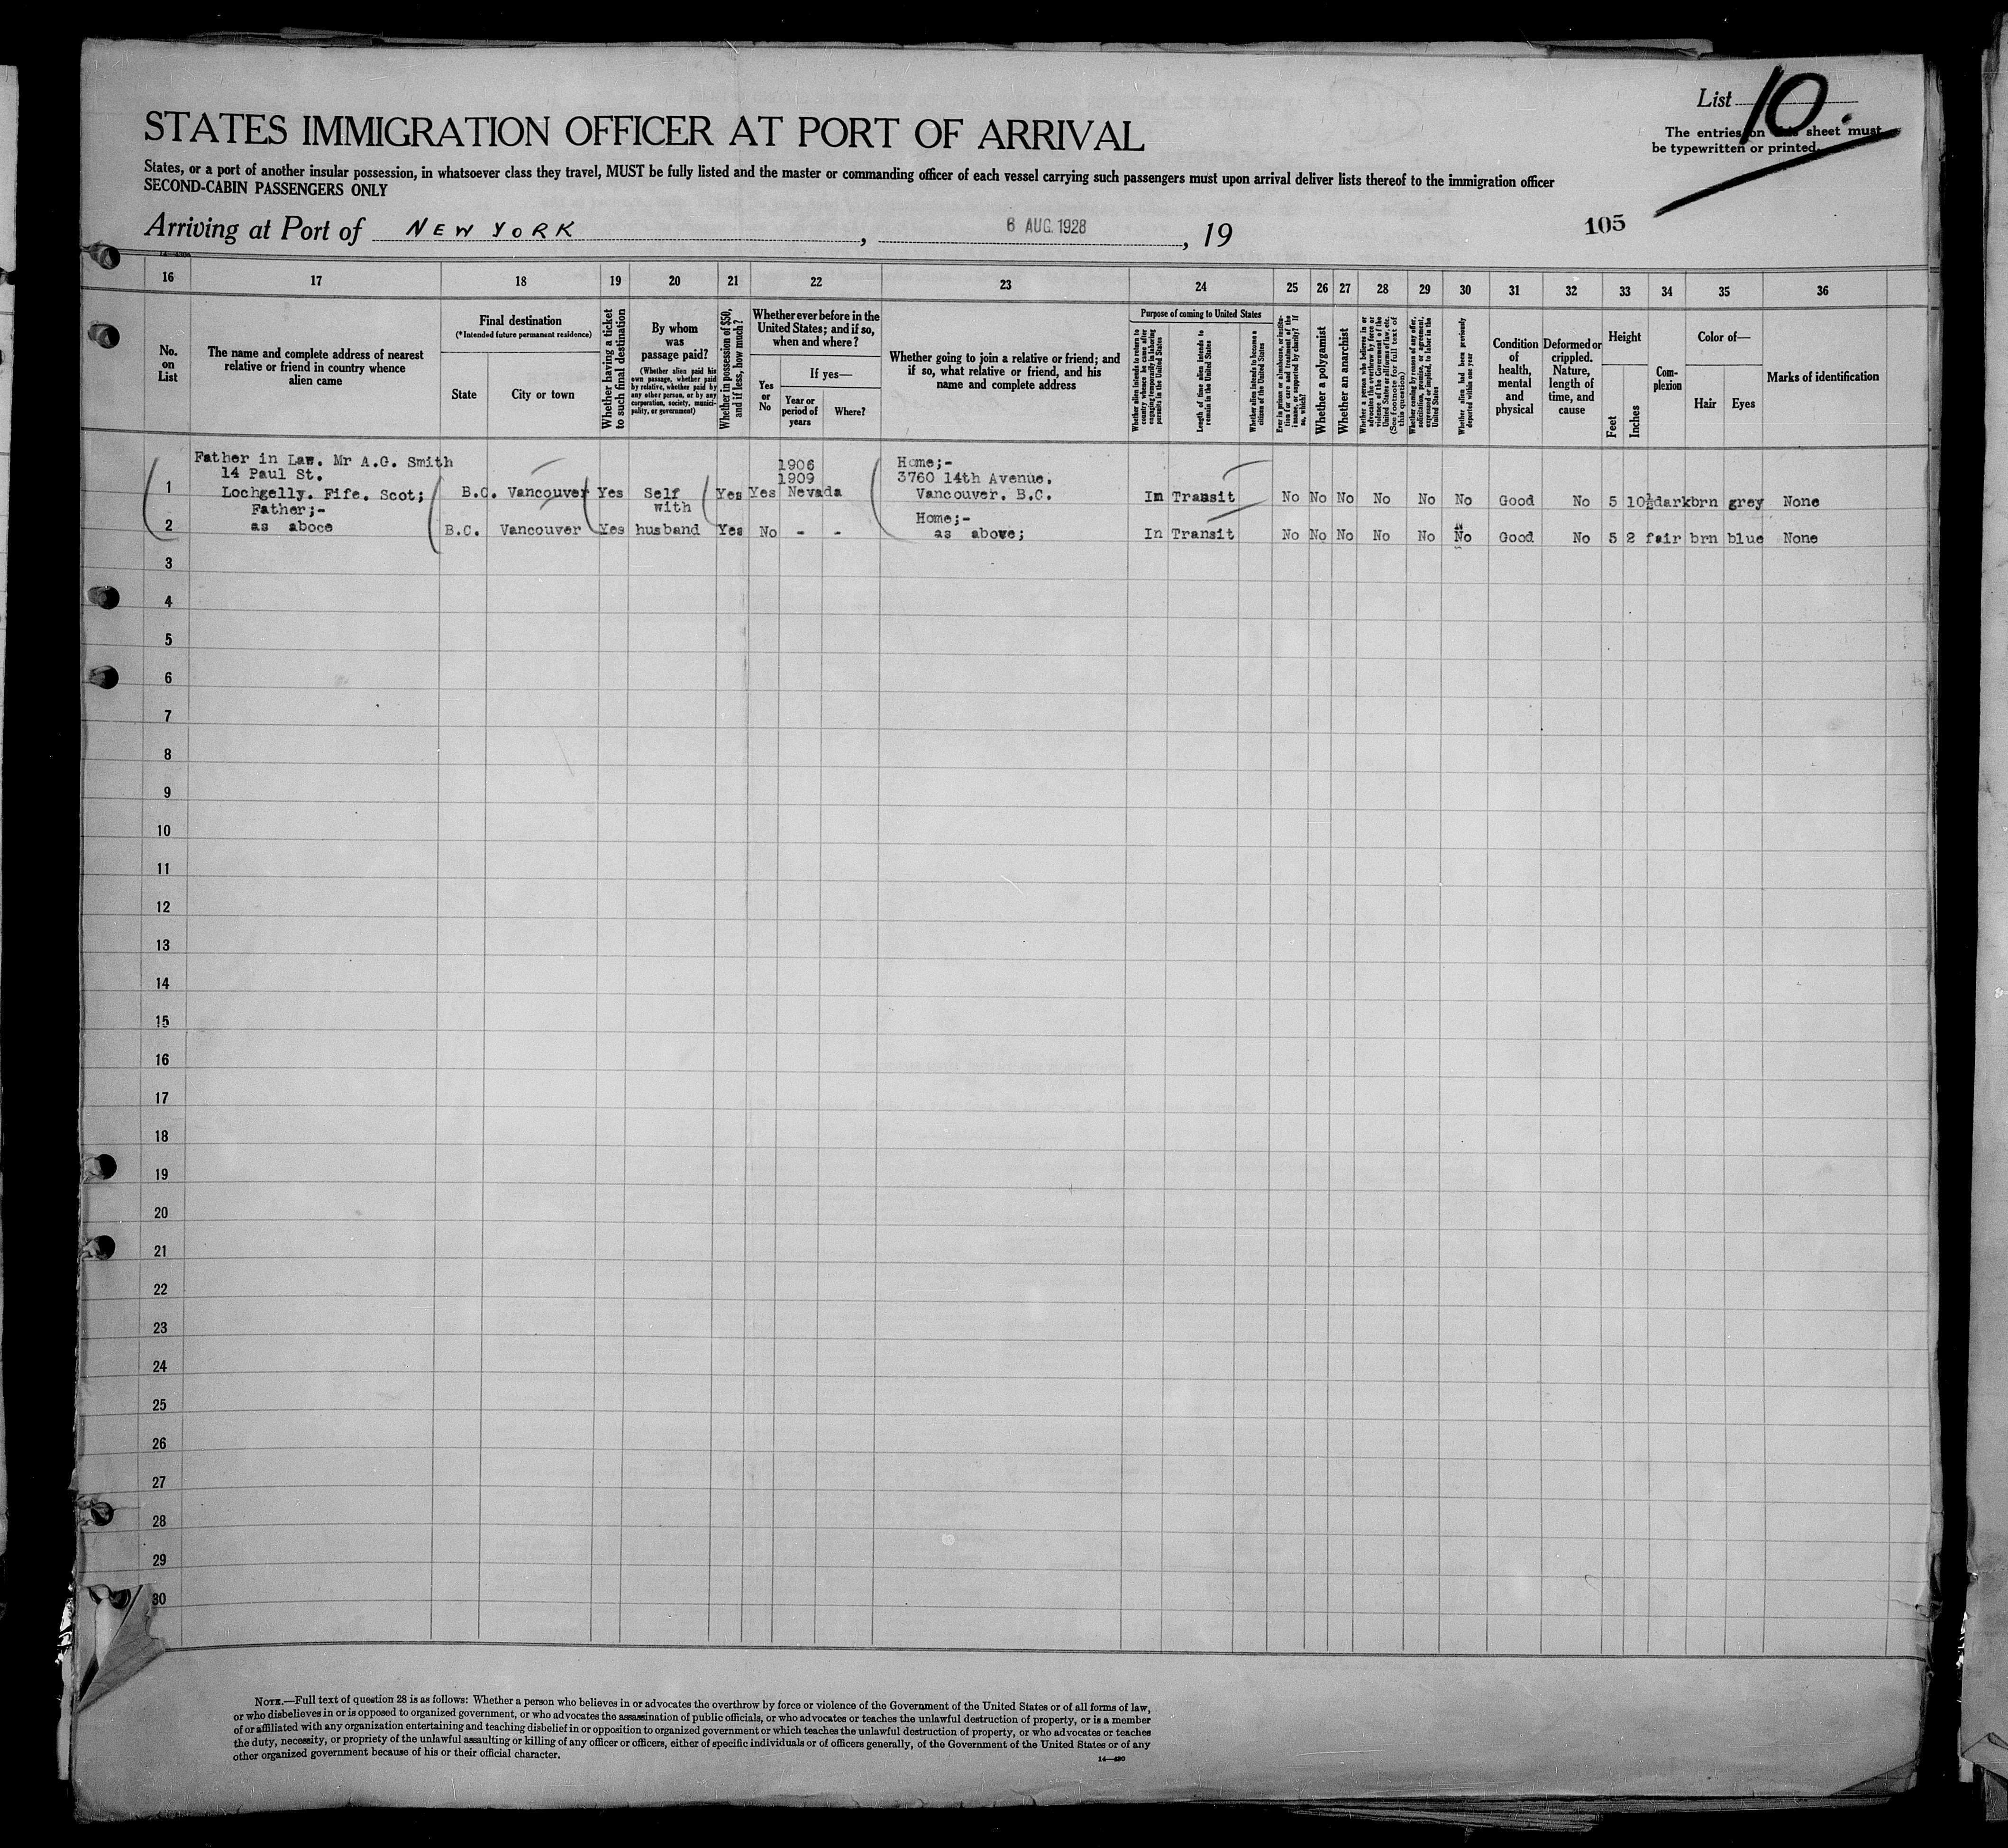 List 10.
The entries on this sheet must
be typewritten or printed.
STATES IMMIGRATION OFFICER AT PORT OF ARRIVAL
States, or a port of another insular possession, in whatsoever class they travel, MUST be fully listed and the master or commanding officer of each vessel carrying such passengers must upon arrival deliver lists thereof to the immigration officer
SECOND-CABIN PASSENGERS ONLY
Arriving at Port of NEW YORK, 6 AUG. 1928, 19
105
16 17 18 19 20 21 22 23 24 25 26 27 28 29 30 31 32 33 34 35 36
No. on List
The name and complete address of nearest relative or friend in country whence alien came
Final destination
(*Intended future permanent residence)
State
City or town
Whether having a ticket to such final destination
By whom was passage paid?
(Whether alien paid his own passage, whether paid by relative, whether paid by any other person, or by any corporation, society, municipality, or government)
Whether in possession of $50, and if less, how much?
Whether ever before in the United States; and if so, when and where?
Yes or No
If yes—
Year or period of years
Where?
Whether going to join a relative or friend; and if so, what relative or friend, and his name and complete address
Purpose of coming to United States
Whether alien intends to return to country whence he came after engaging temporarily in laboring pursuits in the United States
Length of time alien intends to remain in the United States
Whether alien intends to become a citizen of the United States
Ever in prison or almshouse, or institution for care and treatment of the insane, or supported by charity? If so, which?
Whether a polygamist
Whether an anarchist
Whether a person who believes in or advocates the overthrow by force or violence of the Government of the United States or all forms of law, etc. (See footnote for full text of this question)
Whether coming by reason of any offer, solicitation, promise, or agreement, expressed or implied, to labor in the United States
Whether alien had been previously deported within one year
Condition of health, mental and physical
Deformed or crippled. Nature, length of time, and cause
Height
Feet
Inches
Complexion
Color of—
Hair
Eyes
Marks of identification
Father in Law. Mr A.G. Smith 1906 Home;-
14 Paul St. 1909 3760 14th Avenue,
1 Lochgelly. Fife. Scot; B.C. Vancouver Yes Self Yes Yes Nevada Vancouver. B.C. In Transit No No No No No No Good No 5 10½ dark brn grey None
Father;- with Home;-
2 as aboce B.C. Vancouver Yes husband Yes No - - as above; In Transit No No No No No No Good No 5 2 fair brn blue None
3
4
5
6
7
8
9
10
11
12
13
14
15
16
17
18
19
20
21
22
23
24
25
26
27
28
29
30
NOTE.—Full text of question 28 is as follows: Whether a person who believes in or advocates the overthrow by force or violence of the Government of the United States or of all forms of law,
or who disbelieves in or is opposed to organized government, or who advocates the assassination of public officials, or who advocates or teaches the unlawful destruction of property, or is a member
of or affiliated with any organization entertaining and teaching disbelief in or opposition to organized government or which teaches the unlawful destruction of property, or who advocates or teaches
the duty, necessity, or propriety of the unlawful assaulting or killing of any officer or officers, either of specific individuals or of officers generally, of the Government of the United States or of any
other organized government because of his or their official character.
14—430